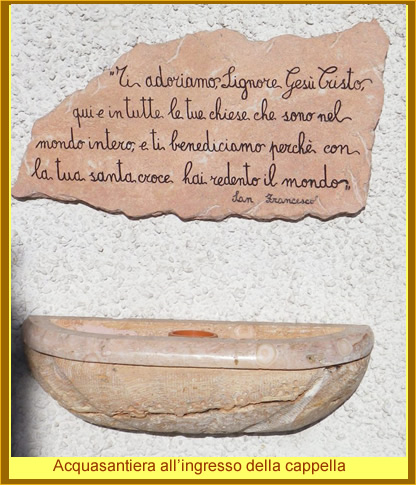 "Ti adoriamo, Signore Gesù Cristo,
qui e in tutte le tue chiese che sono nel
mondo intero, e ti benediciamo perchè con
la tua santa croce hai redento il mondo„
San Francesco
Acquasantiera all'ingresso della cappella